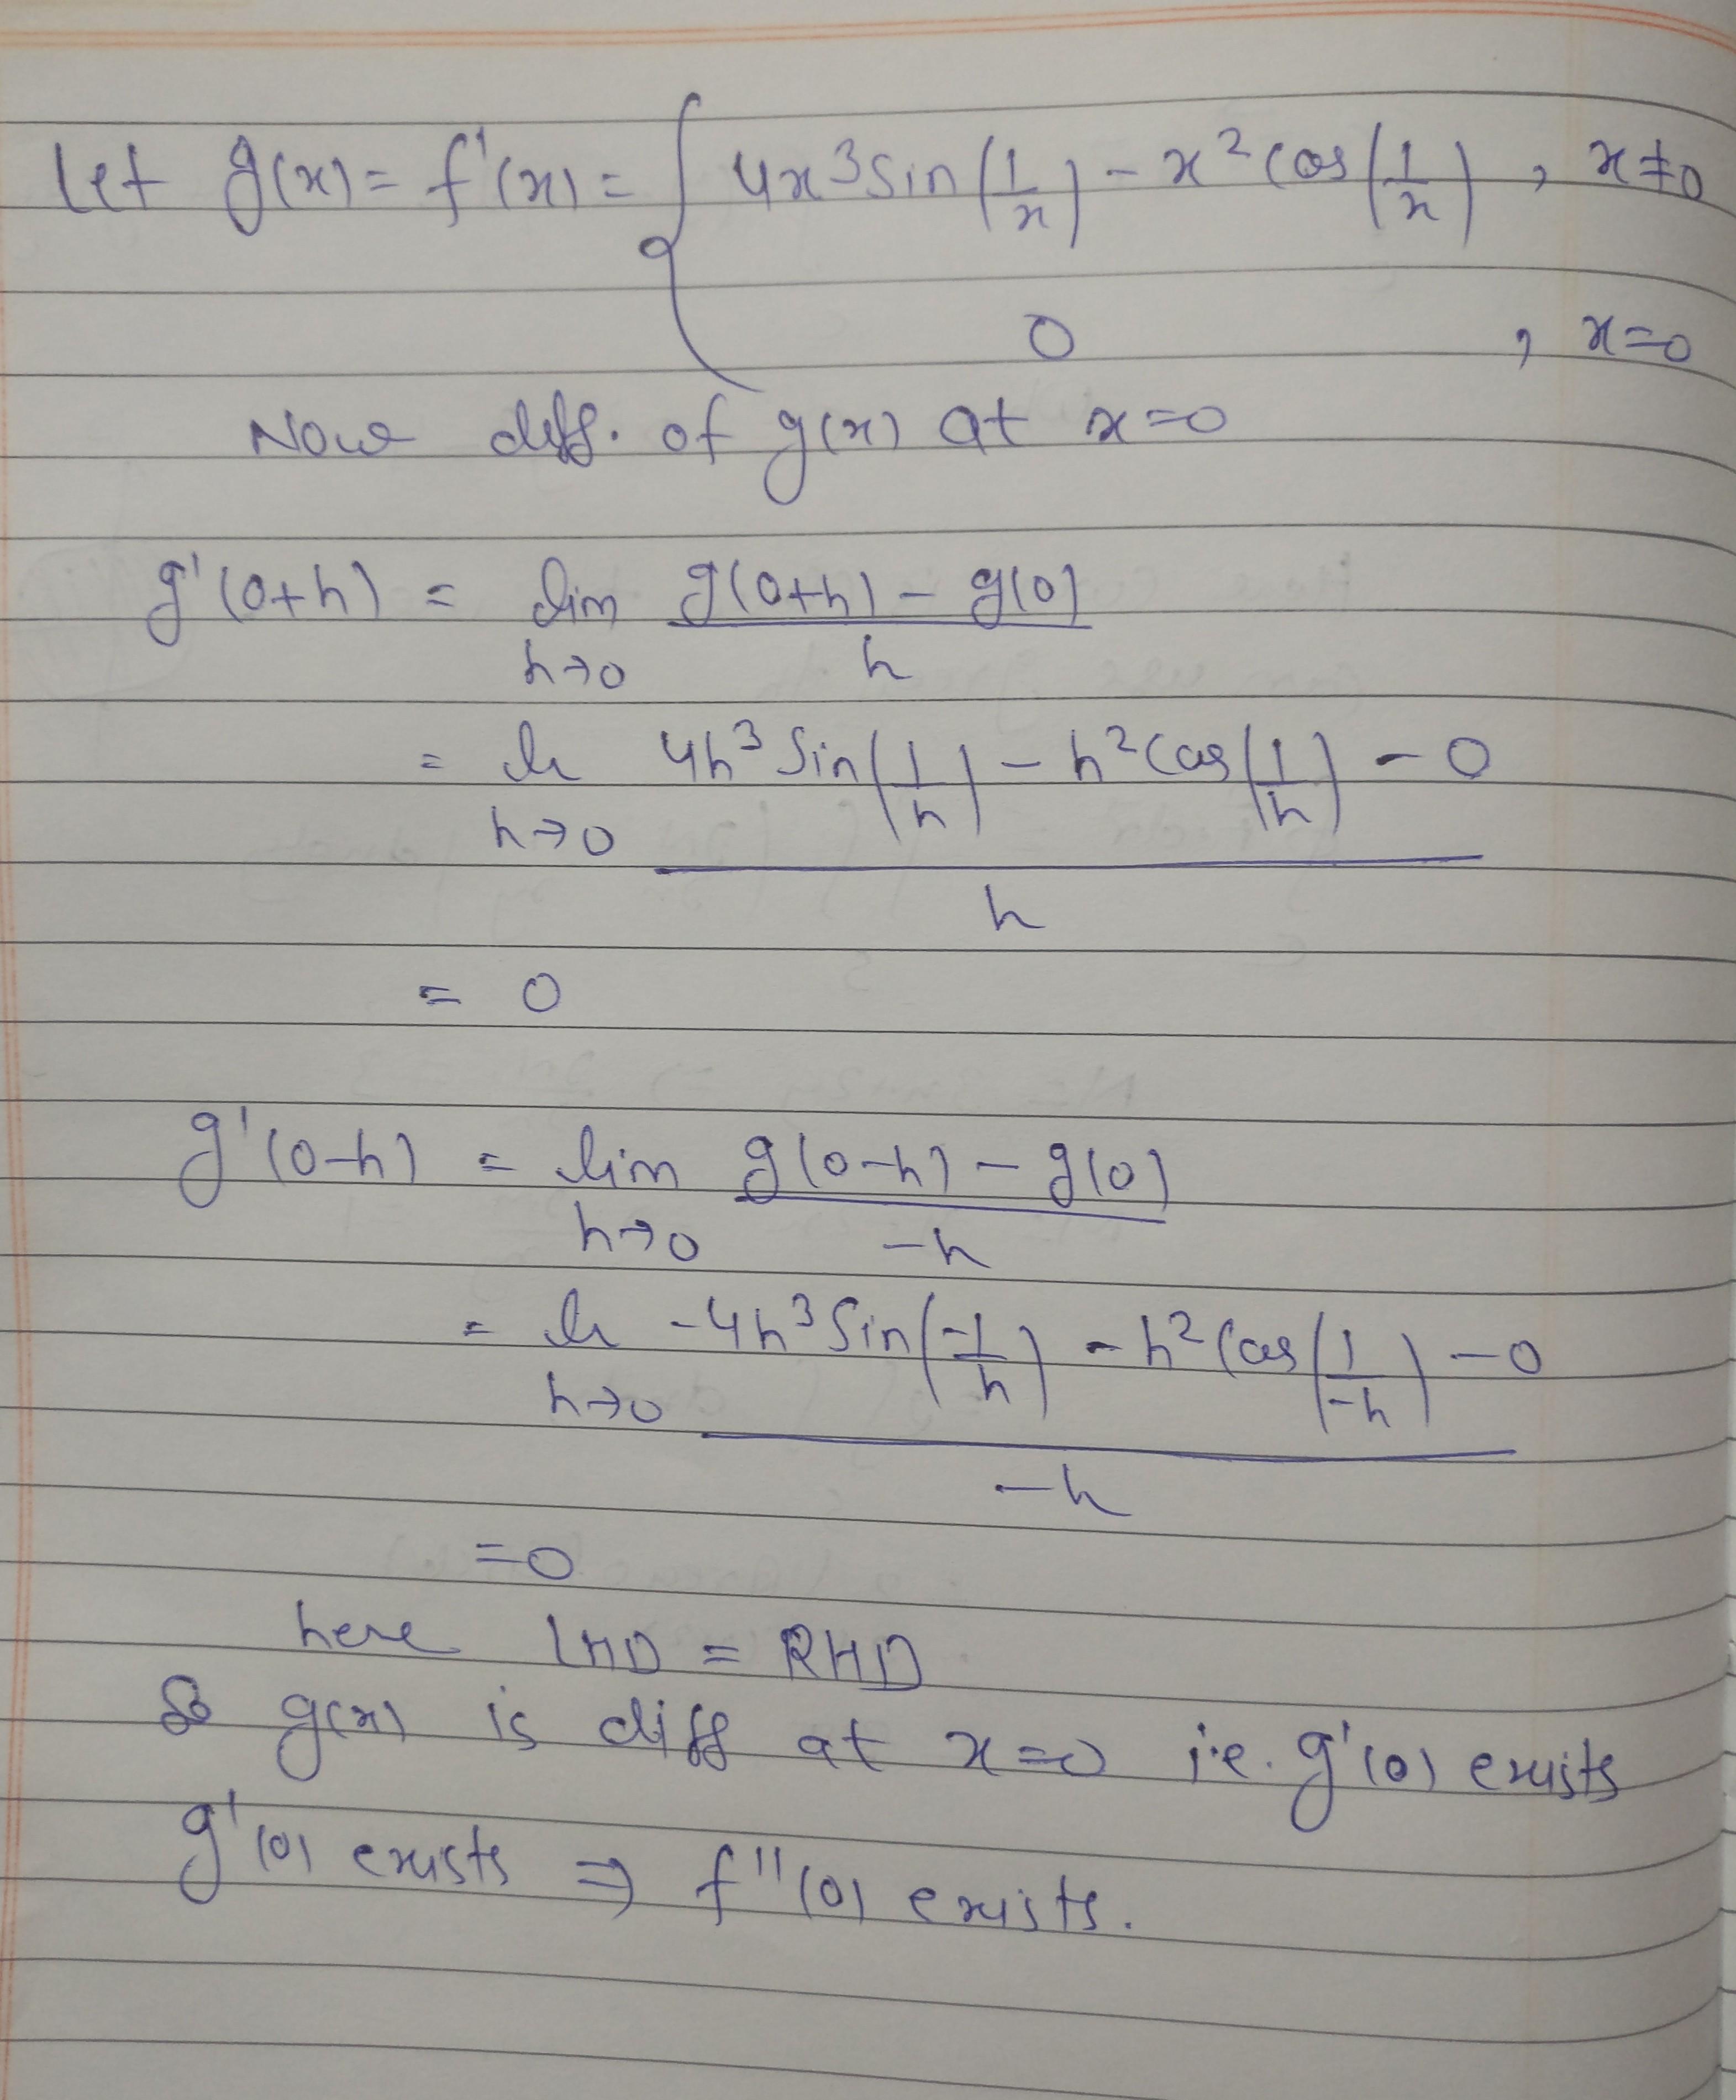 Let g(x) = f'(x) = { 4x³ sin(1/x) - x² cos(1/x) , x≠0
0 , x=0
Now diff. of g(x) at x=0
g'(0+h) = lim h→0 g(0+h) - g(0) / h
= lt h→0 4h³ sin(1/h) - h² cos(1/h) - 0 / h
= 0
g'(0-h) = lim h→0 g(0-h) - g(0) / -h
= lt h→0 -4h³ sin(-1/h) - h² cos(1/-h) - 0 / -h
=0
here LHD = RHD
So g(x) is diff at x=0 i.e. g'(0) exists
g'(0) exists ⇒ f''(0) exists.